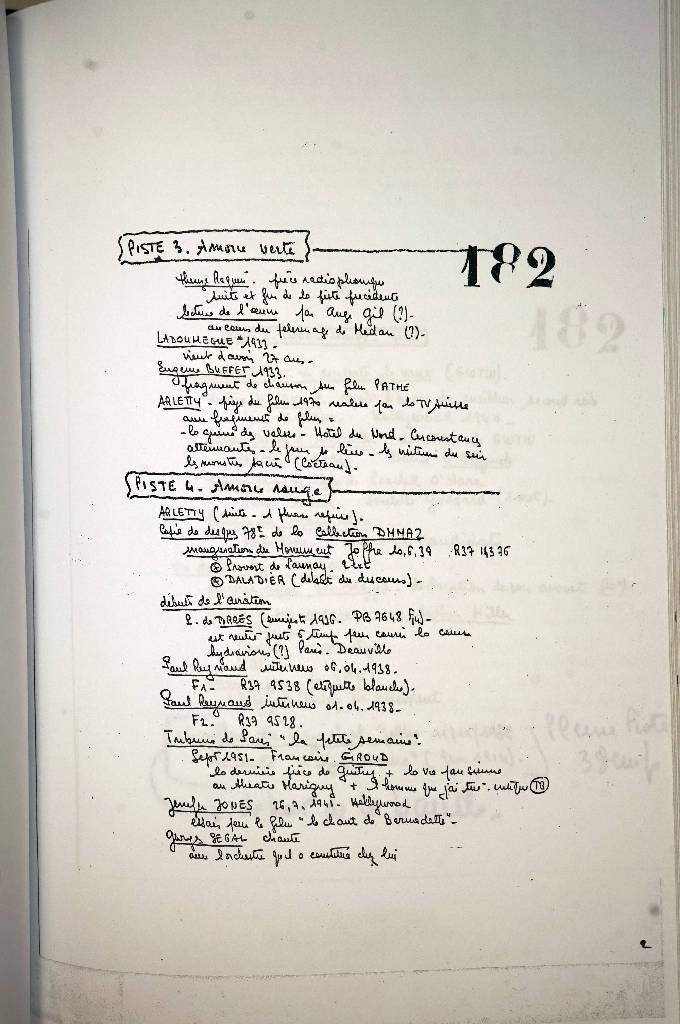 PISTE 3. Amorce verte
182
pièce radiophonique
suite et fin de la piste précédente
lecture de l'œuvre par Ange Gil (?)-
au cours du pélerinage de Médan (?)-
LADOUMEGUE 1933-
vient d'avoir 27 ans-
Eugénie BUFFET 1933.
fragment de chanson sur film PATHE
ARLETTY - film 1970 réalisé par la TV suisse
avec fragments de films =
- la guerre des valses - Hôtel du Nord - Circonstances
atténuantes - le jour se lève - les visiteurs du soir
les monstres sacrés (Cocteau)-
PISTE 4. Amorce rouge
ARLETTY (suite - 1 phrase reprise).
Copie de disques 78t de la Collection
inauguration du Monument Joffre 10,6,39 R37 14376
Provost de Launay
DALADIER (début du discours)-
débuts de l'aviation
(enregistré 1936- PB 7648
est rentré juste à temps pour courir la course
hydravions (?) Paris-Deauville
Paul Reynaud interview 06.04.1938-
F1- R37 9538 (étiquette blanche).
Paul Reynaud interview 01.04.1938-
F2- R37 9528.
Tribune de Paris "la petite semaine".
Sept 1951- Françoise GIROUD
la dernière pièce de Guitry + la vie parisienne
au théâtre Marigny + l'homme que j'ai tué - critique
Jennifer JONES 26,7,1941- Hollywood
essais pour le film "le chant de Bernadette"-
Georges SEGAL chante
avec l'orchestre qu'il a constitué chez lui
2